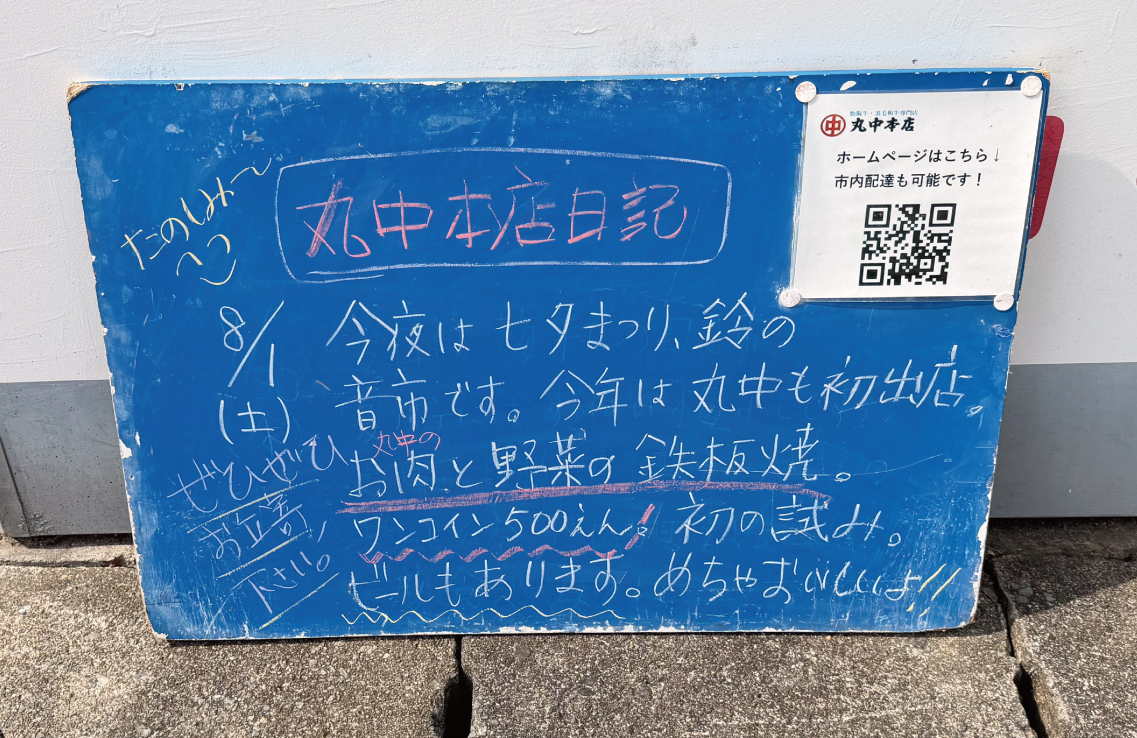 松阪牛・黒毛和牛専門店
丸中本店
ホームページはこちら↓
市内配達も可能です！
丸中本店日記
たのしみ〜
8/1
(土)
今夜は七夕まつり、鈴の
音市です。今年は丸中も初出店。
丸中の
お肉と野菜の鉄板焼。
ワンコイン500えん！初の試み。
ビールもあります。めちゃおいしいよ!!
ぜひぜひ
お立寄り
下さい。